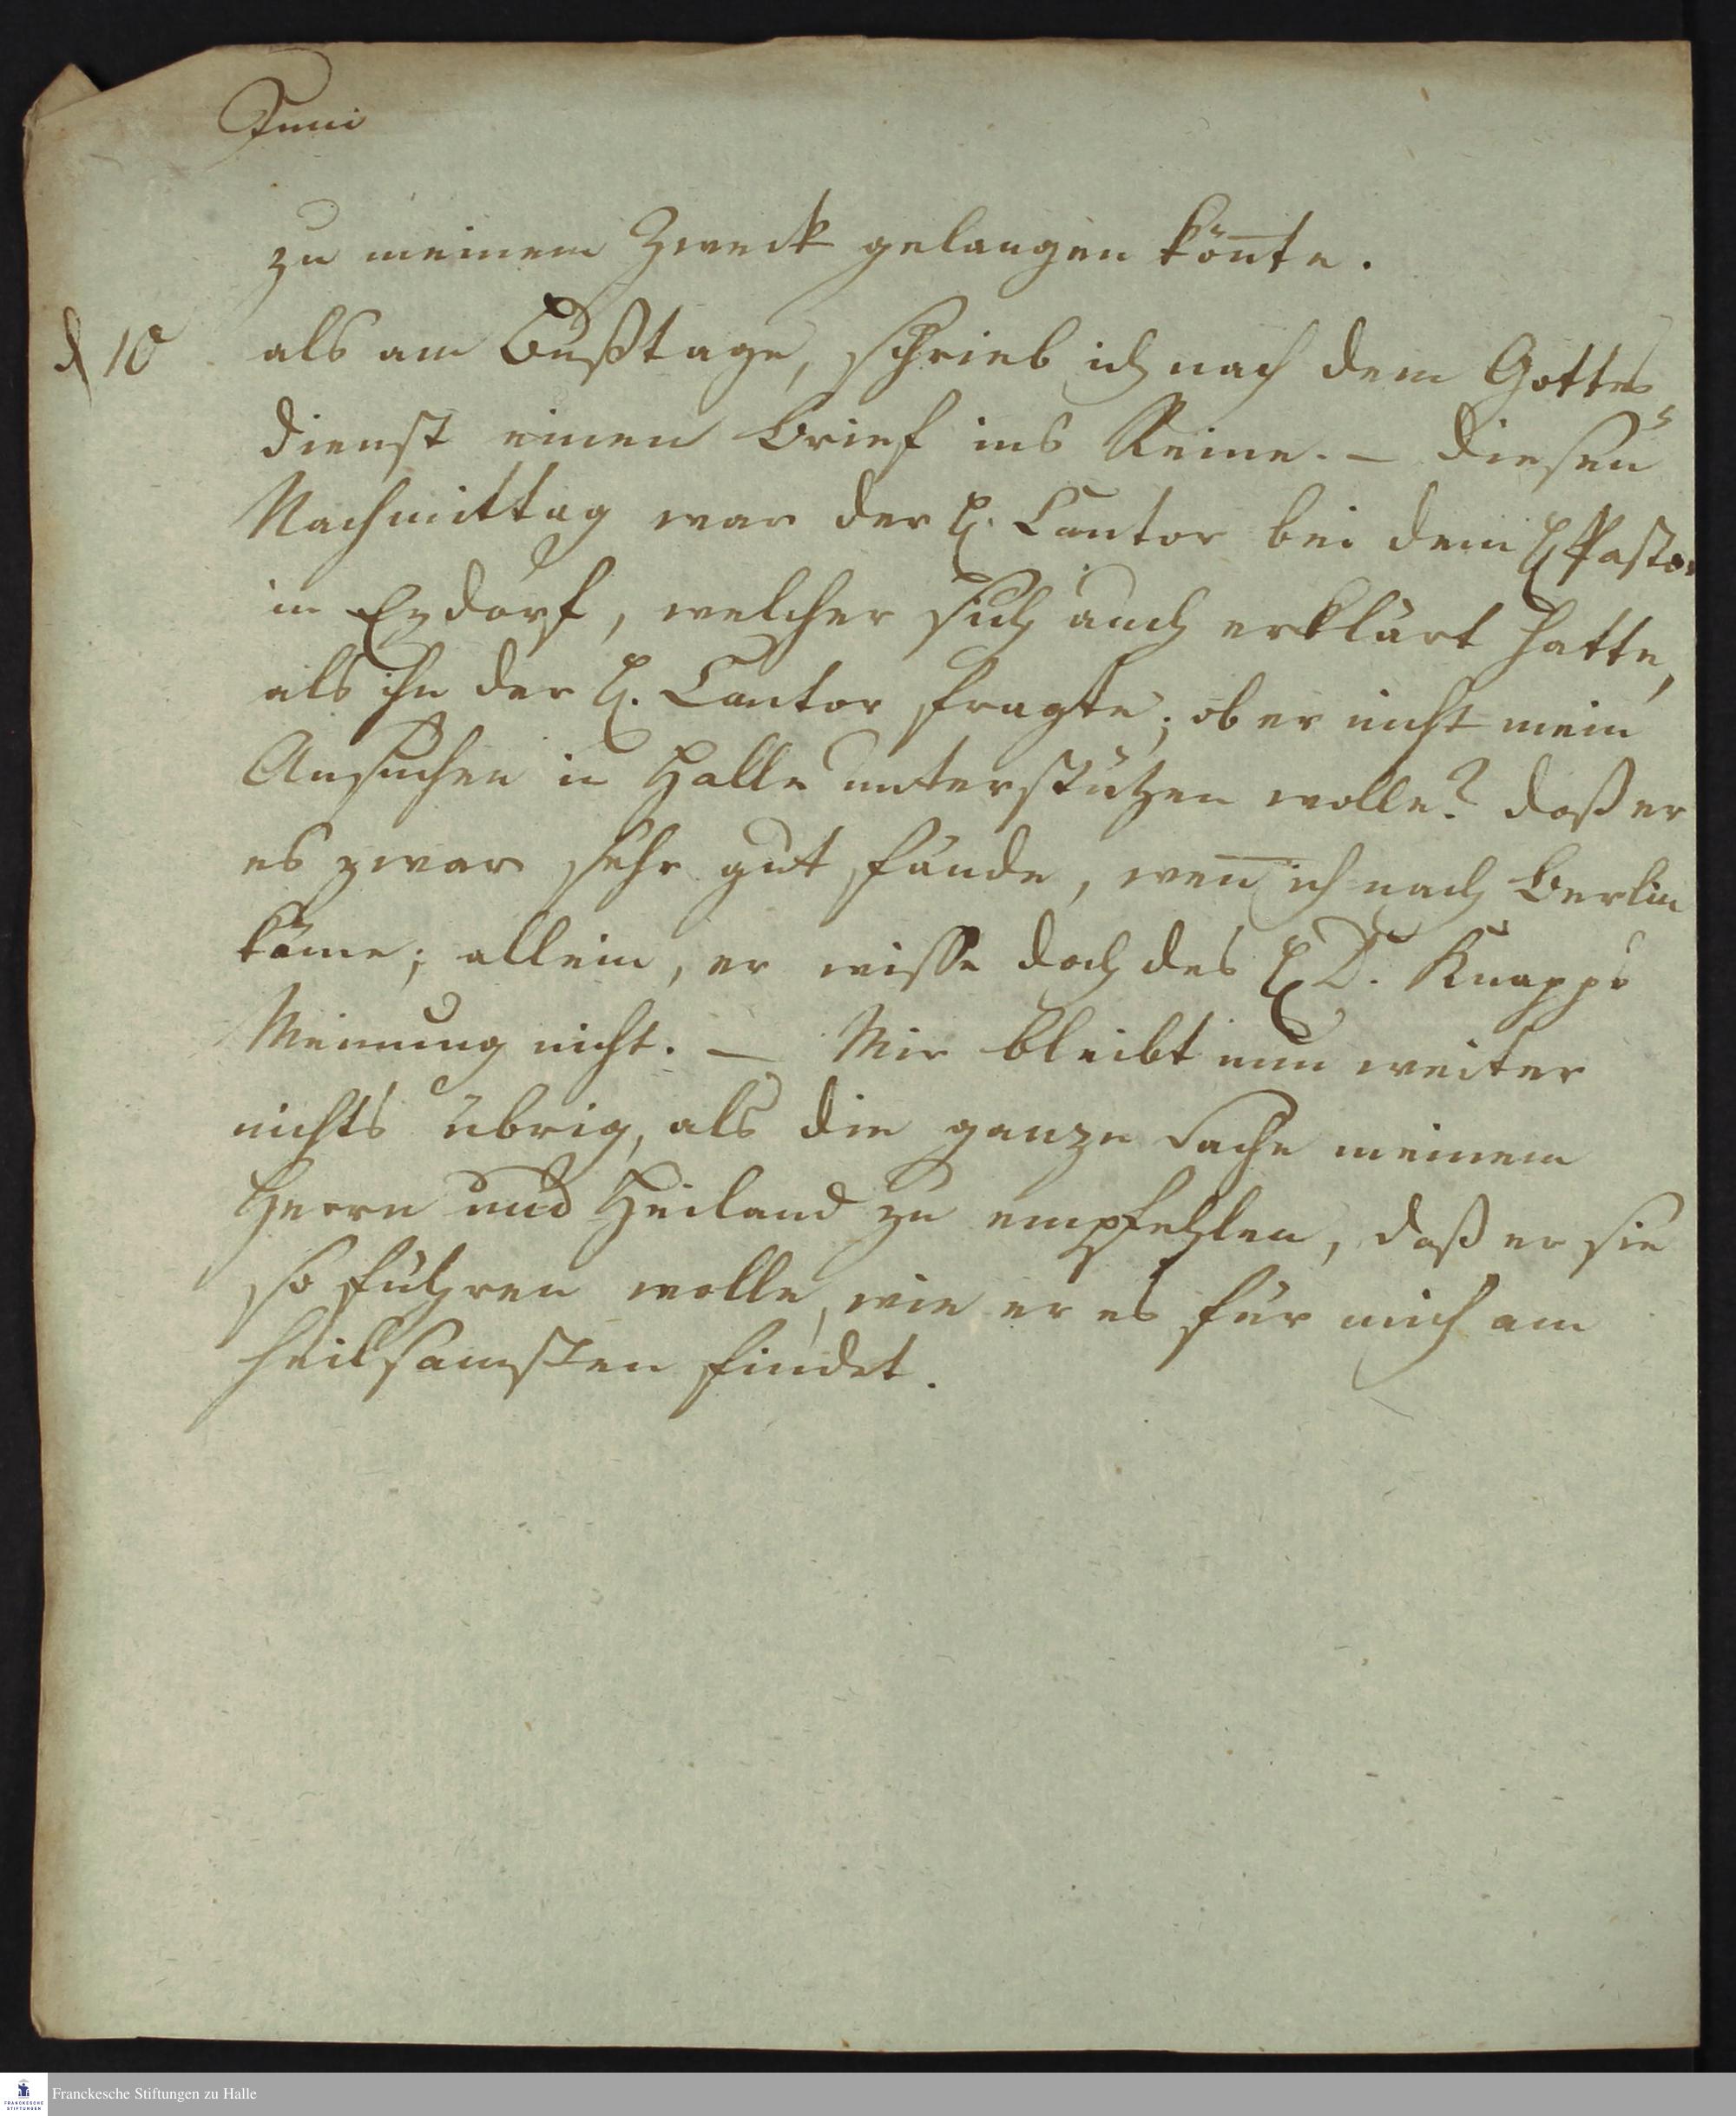 Juni
zu meinem Zweck gelangen kön̅te.
d 10 als am Bußtage, schrieb ich nach dem Gottes
dienst einen Brief ins Reine. – Diesen
Nachmittag war der H. Cantor bei dem H Pastor
in Ezdorf, welcher sich auch erklärt hatte,
als ihn der H. Cantor fragte; ob er nicht mein
Ansuchen in Halle unterstützen wolle? daß er
es zwar sehr gut fände, wen̅ ich nach Berlin
käme; allein, er wisse doch des H D. Knapps
Meinung nicht. – Mir bleibt nun weiter
nichts übrig, als die ganze Sache meinem
Herrn und Heiland zu empfehlen, daß er sie
so führen wolle, wie er es für mich am
heilsamsten findet.
Franckesche Stiftungen zu Halle
FRANCKESCHE
STIFTUNGEN